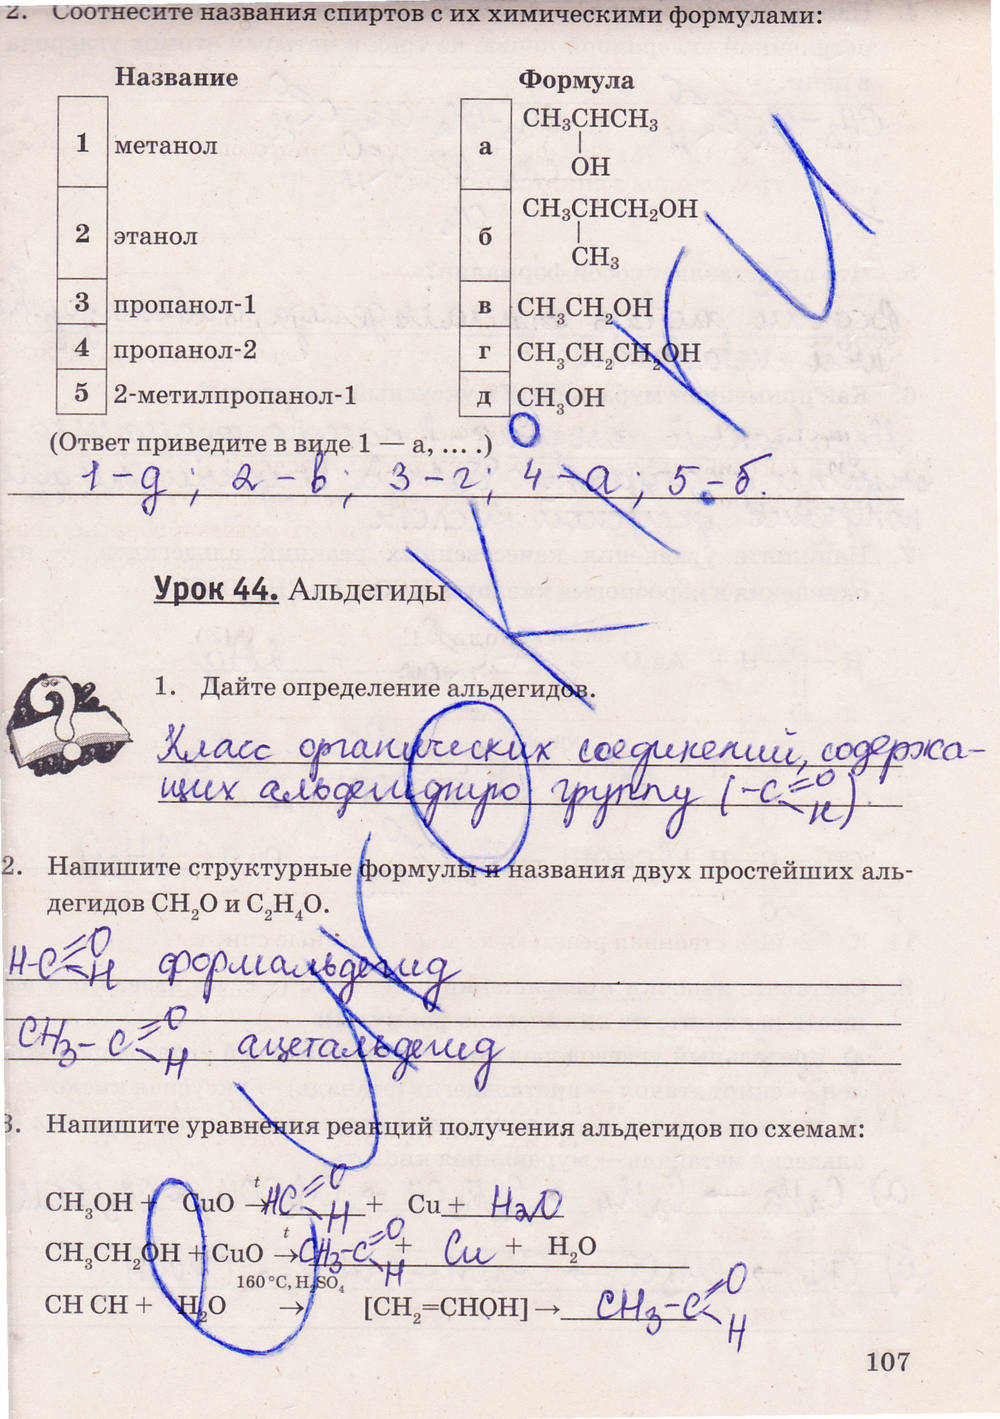 2. Соотнесите названия спиртов с их химическими формулами:
Название Формула
1 метанол а CH₃CHCH₃
|
OH
2 этанол б CH₃CHCH₂OH
|
CH₃
3 пропанол-1 в CH₃CH₂OH
4 пропанол-2 г CH₃CH₂CH₂OH
5 2-метилпропанол-1 д CH₃OH
(Ответ приведите в виде 1 — а, ... .)
1-д; 2-в; 3-г; 4-а; 5-б.
Урок 44. Альдегиды
1. Дайте определение альдегидов.
Класс органических соединений, содержа-
щих альдегидную группу (-C=O
H).
2. Напишите структурные формулы и названия двух простейших аль-
дегидов CH₂O и C₂H₄O.
H-C=O
H формальдегид
CH₃-C=O
H ацетальдегид
3. Напишите уравнения реакций получения альдегидов по схемам:
CH₃OH + CuO t→ HC=O
H + Cu + H₂O
CH₃CH₂OH + CuO t→ CH₃-C=O
H + Cu + H₂O
160°C, H₂SO₄
CH CH + H₂O → [CH₂=CHOH] → CH₃-C=O
H
107